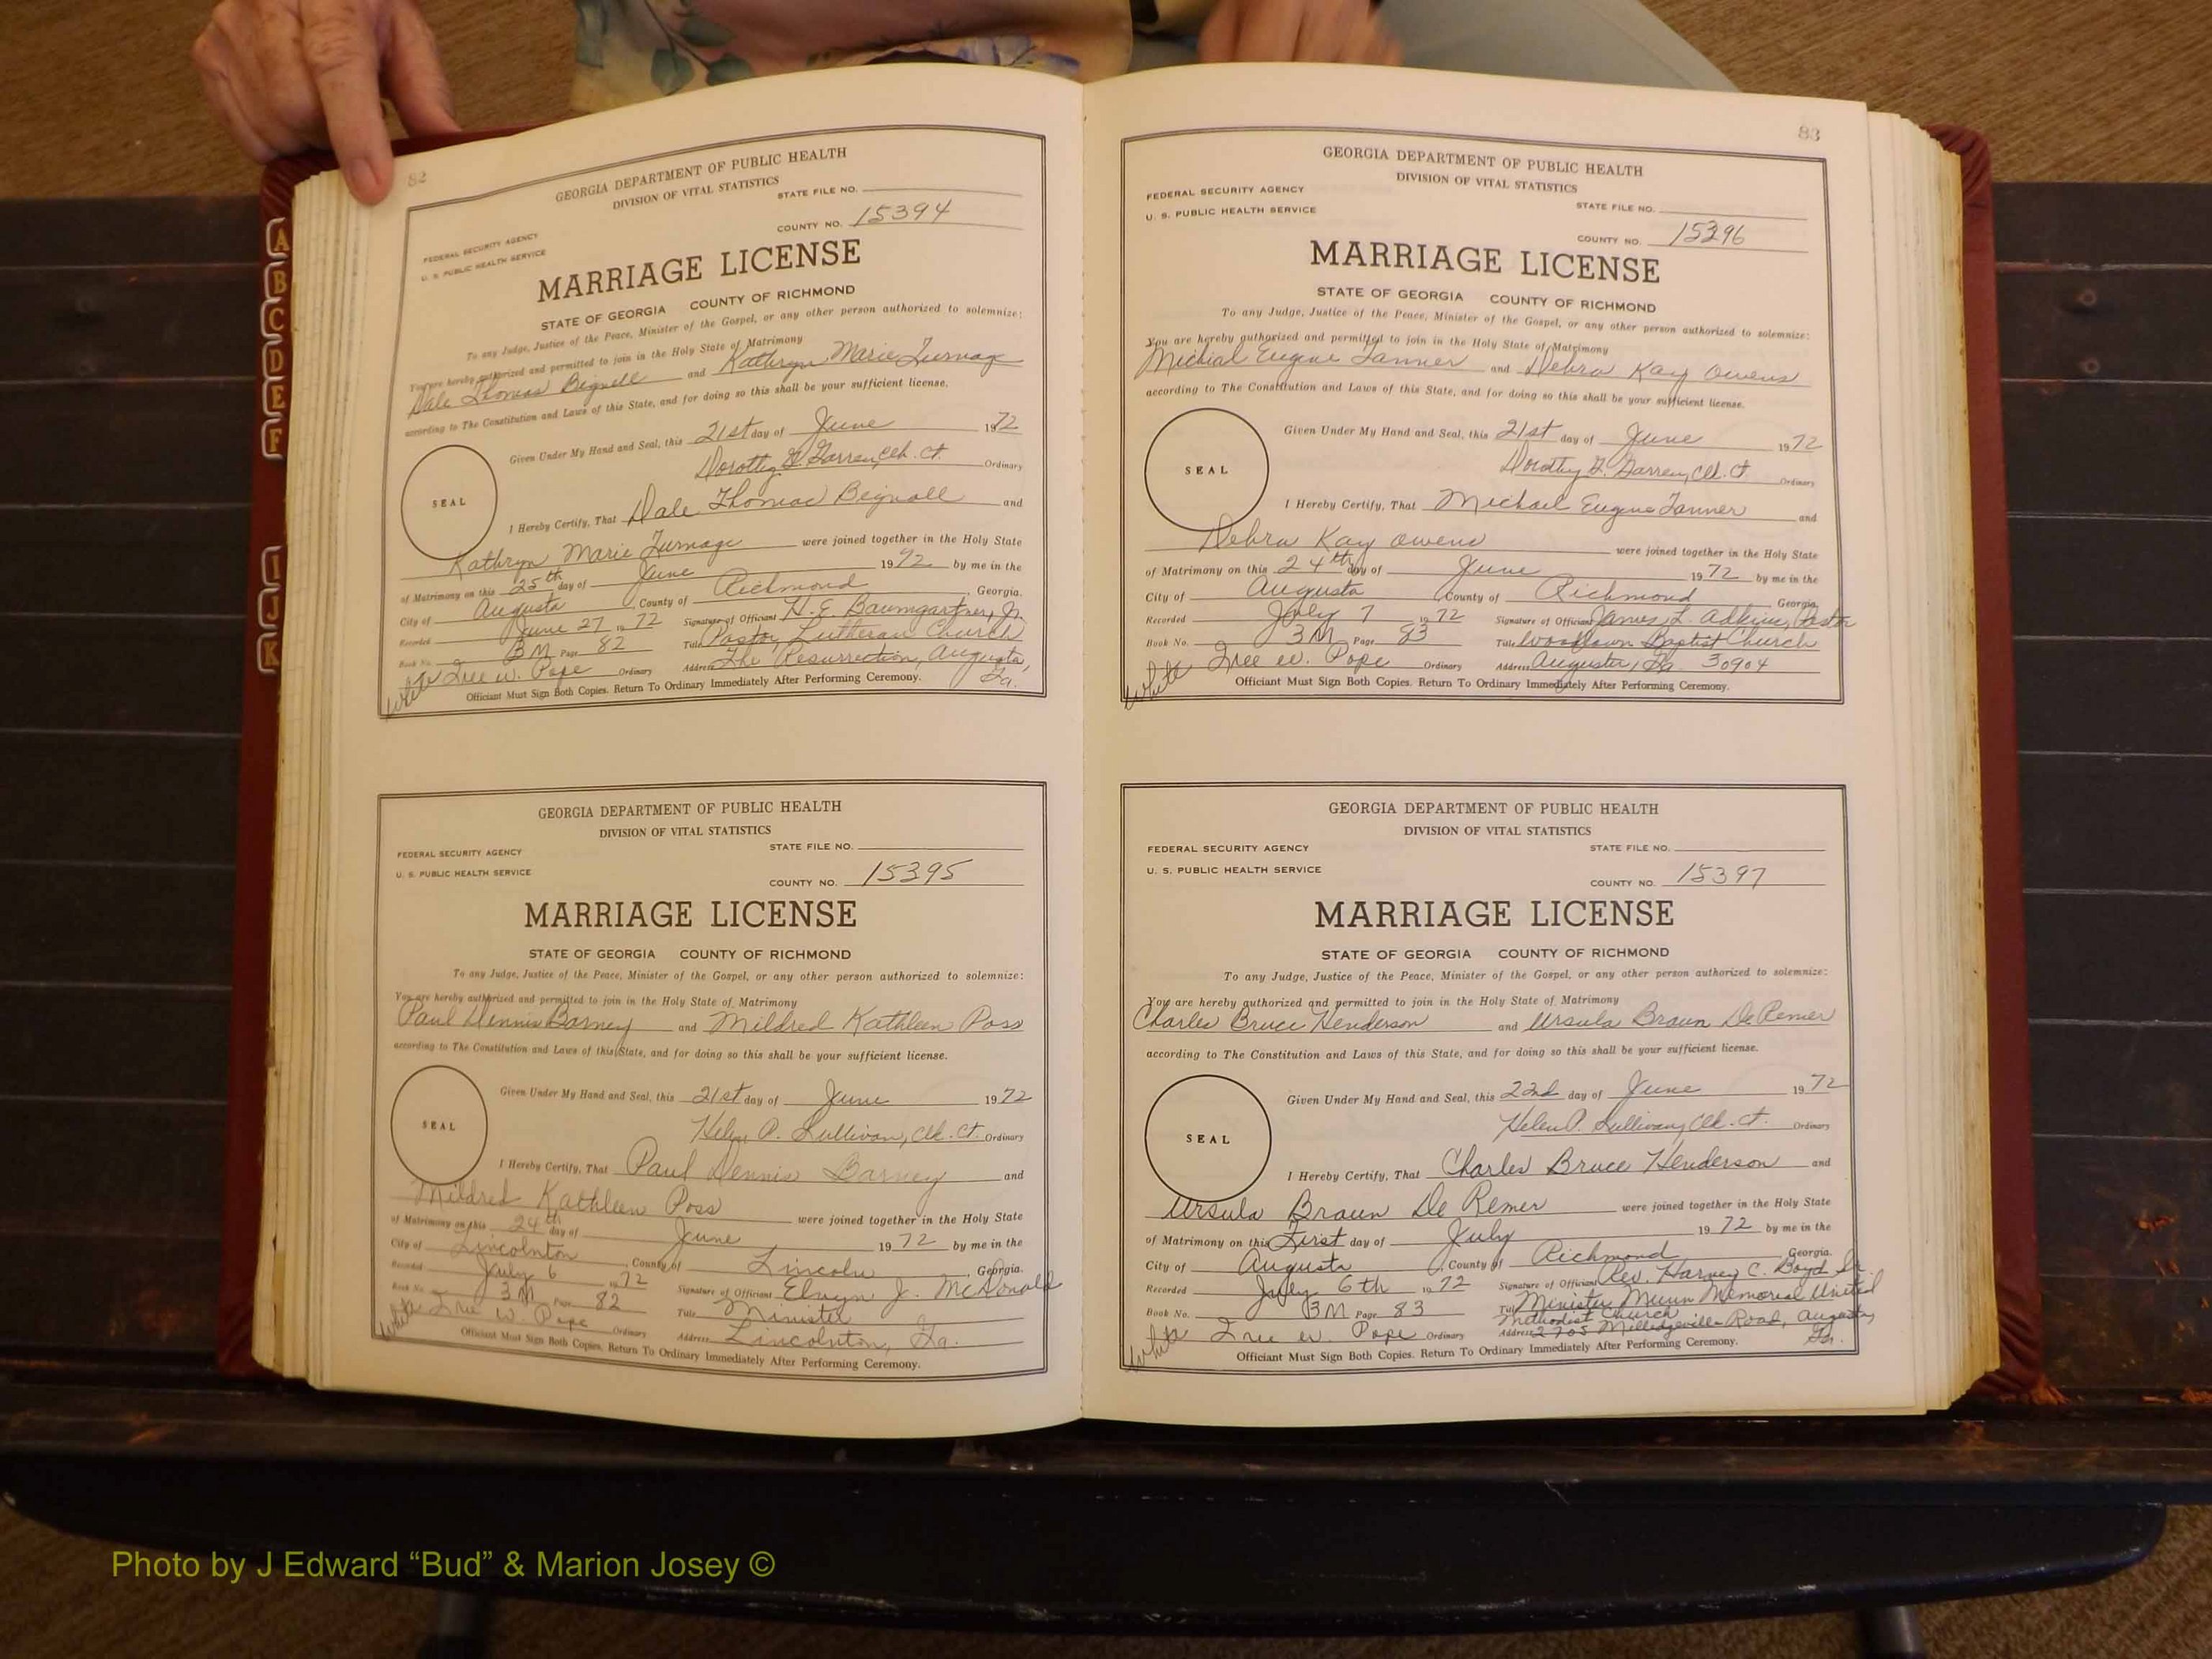 A
B
C
D
E
F
I
J
K
82
GEORGIA DEPARTMENT OF PUBLIC HEALTH
DIVISION OF VITAL STATISTICS
STATE FILE NO.
FEDERAL SECURITY AGENCY
U. S. PUBLIC HEALTH SERVICE
COUNTY NO. 15394
MARRIAGE LICENSE
STATE OF GEORGIA COUNTY OF RICHMOND
To any Judge, Justice of the Peace, Minister of the Gospel, or any other person authorized to solemnize:
You are hereby authorized and permitted to join in the Holy State of Matrimony
Dale Thomas Bignall and Kathryn Marie Turnage
according to The Constitution and Laws of this State, and for doing so this shall be your sufficient license.
Given Under My Hand and Seal, this 21st day of June 1972
Dorothy Clk. Ct. Ordinary
SEAL
I Hereby Certify, That Dale Thomas Bignall and
Kathryn Marie Turnage were joined together in the Holy State
of Matrimony on this 25th day of June 1972 by me in the
City of Augusta County of Richmond, Georgia.
Recorded June 27 1972 Signature of Officiant H. E. Baumgartner, Jr.
Book No. 3M Page 82 Title Pastor, Lutheran Church
White Ordinary Address The Resurrection, Augusta, Ga.
Officiant Must Sign Both Copies. Return To Ordinary Immediately After Performing Ceremony.
GEORGIA DEPARTMENT OF PUBLIC HEALTH
DIVISION OF VITAL STATISTICS
STATE FILE NO.
FEDERAL SECURITY AGENCY
U. S. PUBLIC HEALTH SERVICE
COUNTY NO. 15395
MARRIAGE LICENSE
STATE OF GEORGIA COUNTY OF RICHMOND
To any Judge, Justice of the Peace, Minister of the Gospel, or any other person authorized to solemnize:
You are hereby authorized and permitted to join in the Holy State of Matrimony
Paul Dennis Barney and Mildred Kathleen Poss
according to The Constitution and Laws of this State, and for doing so this shall be your sufficient license.
Given Under My Hand and Seal, this 21st day of June 1972
Helen P. Sullivan, Clk. Ct. Ordinary
SEAL
I Hereby Certify, That Paul Dennis Barney and
Mildred Kathleen Poss were joined together in the Holy State
of Matrimony on this 24th day of June 1972 by me in the
City of Lincolnton, County of Lincoln, Georgia.
Recorded July 6 1972 Signature of Officiant J. McDonald
Book No. 3M Page 82 Title Minister
White Ordinary Address Lincolnton, Ga.
Officiant Must Sign Both Copies. Return To Ordinary Immediately After Performing Ceremony.
83
GEORGIA DEPARTMENT OF PUBLIC HEALTH
DIVISION OF VITAL STATISTICS
FEDERAL SECURITY AGENCY
U. S. PUBLIC HEALTH SERVICE
STATE FILE NO.
COUNTY NO. 15396
MARRIAGE LICENSE
STATE OF GEORGIA COUNTY OF RICHMOND
To any Judge, Justice of the Peace, Minister of the Gospel, or any other person authorized to solemnize:
You are hereby authorized and permitted to join in the Holy State of Matrimony
Michial Eugene Tanner and Debra Kay Owens
according to The Constitution and Laws of this State, and for doing so this shall be your sufficient license.
Given Under My Hand and Seal, this 21st day of June 1972
Dorothy Clk. Ct. Ordinary
SEAL
I Hereby Certify, That Michael Eugene Tanner and
Debra Kay Owens were joined together in the Holy State
of Matrimony on this 24th day of June 1972 by me in the
City of Augusta County of Richmond Georgia.
Recorded July 7 1972 Signature of Officiant James L. Adkins, Pastor
Book No. 3M Page 83 Title Woodlawn Baptist Church
White Ordinary Address Augusta, Ga. 30904
Officiant Must Sign Both Copies. Return To Ordinary Immediately After Performing Ceremony.
GEORGIA DEPARTMENT OF PUBLIC HEALTH
DIVISION OF VITAL STATISTICS
FEDERAL SECURITY AGENCY
STATE FILE NO.
U. S. PUBLIC HEALTH SERVICE
COUNTY NO. 15397
MARRIAGE LICENSE
STATE OF GEORGIA COUNTY OF RICHMOND
To any Judge, Justice of the Peace, Minister of the Gospel, or any other person authorized to solemnize:
You are hereby authorized and permitted to join in the Holy State of Matrimony
Charles Bruce Henderson and Ursula Braun DeRemer
according to The Constitution and Laws of this State, and for doing so this shall be your sufficient license.
Given Under My Hand and Seal, this 22nd day of June 1972
Helen P. Sullivan, Clk. Ct. Ordinary
SEAL
I Hereby Certify, That Charles Bruce Henderson and
Ursula Braun De Remer were joined together in the Holy State
of Matrimony on this First day of July 1972 by me in the
City of Augusta, County of Richmond, Georgia.
Recorded July 6th 1972 Signature of Officiant Rev. Harvey C. Boyd Sr.
Book No. 3M Page 83 Title Minister Munn Memorial United Methodist Church
White Ordinary Address 2705 Milledgeville Road, Augusta, Ga.
Officiant Must Sign Both Copies. Return To Ordinary Immediately After Performing Ceremony.
Photo by J Edward “Bud” & Marion Josey ©